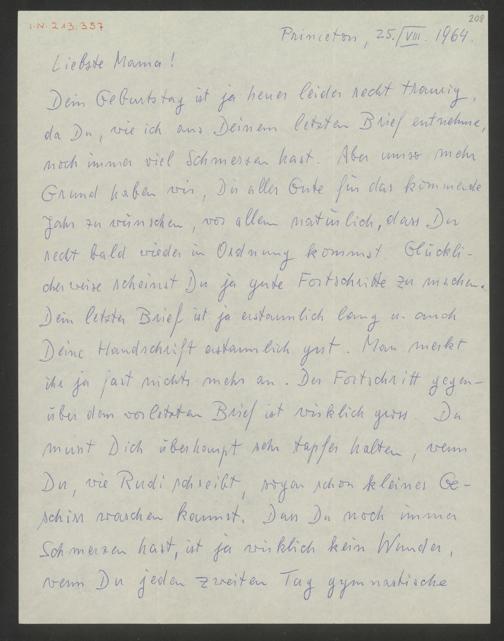 208
I.N. 213.357
Princeton, 25./VIII. 1964.
Liebste Mama!
Dein Geburtstag ist ja heuer leider recht traurig,
da Du, wie ich aus Deinem letzten Brief entnehme,
noch immer viel Schmerzen hast. Aber umso mehr
Grund haben wir, Dir alles Gute für das kommende
Jahr zu wünschen, vor allem natürlich, dass Du
recht bald wieder in Ordnung kommst. Glückli-
cherweise scheinst Du ja gute Fortschritte zu machen.
Dein letzter Brief ist ja erstaunlich lang u. auch
Deine Handschrift erstaunlich gut. Man merkt
ihr ja fast nichts mehr an. Der Fortschritt gegen-
über dem vorletzten Brief ist wirklich gross. Du
musst Dich überhaupt sehr tapfer halten, wenn
Du, wie Rudi schreibt, sogar schon kleines Ge-
schirr waschen kannst. Dass Du noch immer
Schmerzen hast, ist ja wirklich kein Wunder,
wenn Du jeden zweiten Tag gymnastische